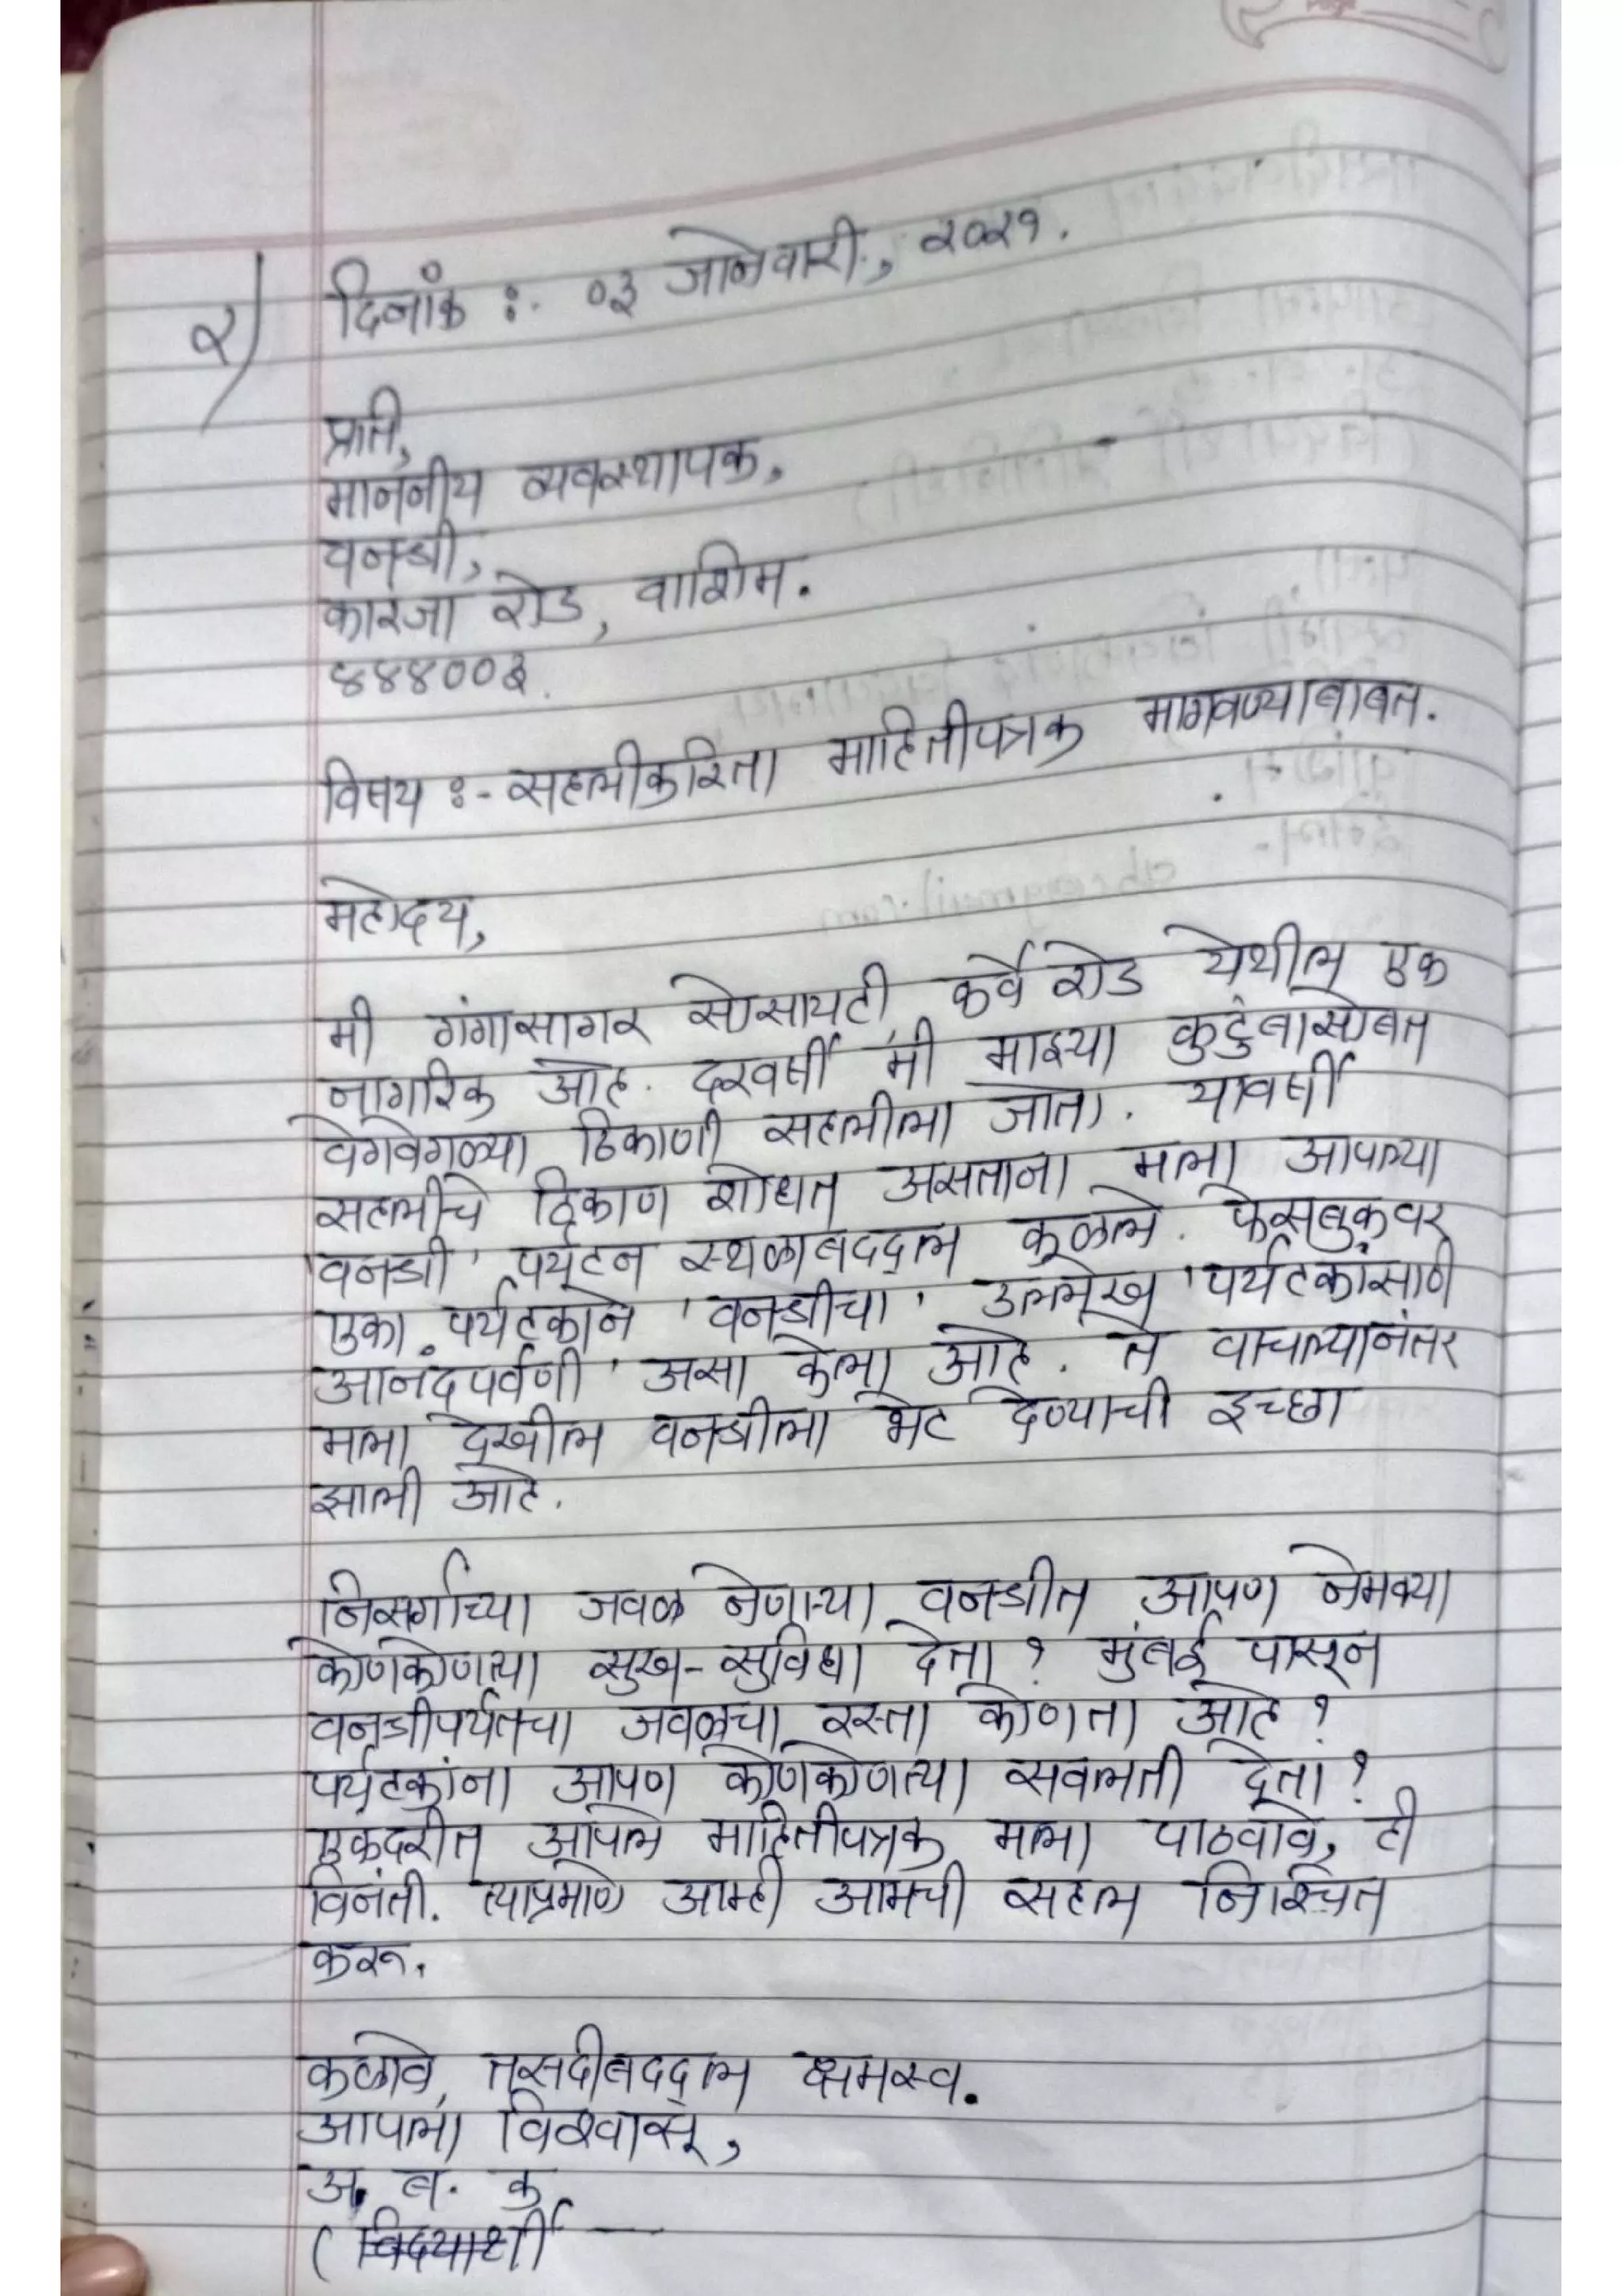 २) दिनांक :- ०३ जानेवारी, २०२१.
प्रति,
माननीय व्यवस्थापक,
वनश्री,
कारंजा रोड, वाशिम.
४४४००३.
विषय :- सहलीकरिता माहितीपत्रक मागवण्याबाबत.
महोदय,
मी गंगासागर सोसायटी, कर्वे रोड येथील एक
नागरिक आहे. दरवर्षी मी माझ्या कुटुंबासोबत
वेगवेगळ्या ठिकाणी सहलीला जातो. यावर्षी
सहलीचे ठिकाण शोधत असताना मला आपल्या
'वनश्री' पर्यटन स्थळाबद्दल कळले. फेसबुकवर
एका पर्यटकाने 'वनश्रीचा' उल्लेख 'पर्यटकांसाठी
आनंदपर्वणी' असा केला आहे. ते वाचल्यानंतर
मला देखील वनश्रीला भेट देण्याची इच्छा
झाली आहे.
निसर्गाच्या जवळ नेणाऱ्या वनश्रीत आपण नेमक्या
कोणकोणत्या सुख-सुविधा देता? मुंबई पासून
वनश्रीपर्यंतचा जवळचा रस्ता कोणता आहे?
पर्यटकांना आपण कोणकोणत्या सवलती देता?
एकंदरीत आपले माहितीपत्रक मला पाठवावे, ही
विनंती. त्याप्रमाणे आम्ही आमची सहल निश्चित
करू.
कळावे, तसदीबद्दल क्षमस्व.
आपला विश्वासू,
अ. ब. क
(विद्यार्थी